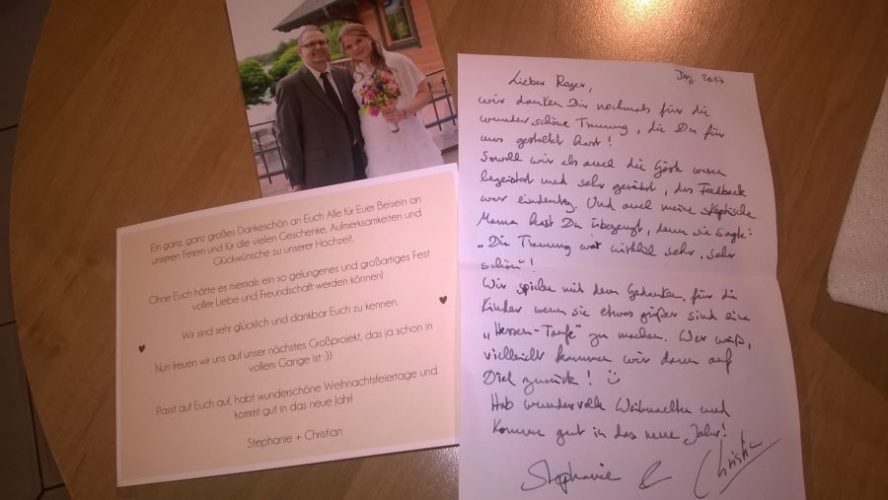 Ein ganz, ganz großes Dankeschön an Euch Alle für Euer Beisein an
unseren Feiern und für die vielen Geschenke, Aufmerksamkeiten und
Glückwünsche zu unserer Hochzeit.
Ohne Euch hätte es niemals ein so gelungenes und großartiges Fest
voller Liebe und Freundschaft werden können!
Wir sind sehr glücklich und dankbar Euch zu kennen.
Nun freuen wir uns auf unser nächstes Großprojekt, das ja schon in
vollem Gange ist :-))
Passt auf Euch auf, habt wunderschöne Weihnachtsfeiertage und
kommt gut in das neue Jahr!
Stephanie + Christian
Dez 2017
Lieber Roger,
wir danken Dir nochmals für die
wunderschöne Trauung, die Du für
uns gestaltet hast!
Sowohl wir als auch die Gäste waren
begeistert und sehr gerührt, das Feedback
war eindeutig. Und auch meine skeptische
Mama hast Du überzeugt, denn sie sagte:
„Die Trauung war wirklich sehr, sehr
schön"!
Wir spielen mit dem Gedanken, für die
Kinder wenn sie etwas größer sind eine
„Herzen-Taufe" zu machen. Wer weiß,
vielleicht kommen wir dann auf
Dich zurück! ☺
Hab wundervolle Weihnachten und
komme gut in das neue Jahr!
Stephanie & Christian